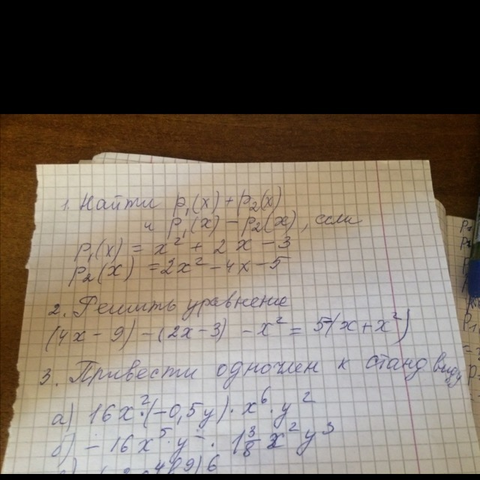 1. Найти p₁(x) + p₂(x)
и p₁(x) – p₂(x), если
p₁(x) = x² + 2x – 3
p₂(x) = 2x² – 4x – 5
2. Решить уравнение
(4x – 9) – (2x – 3) – x² = 5(x + x²)
3. Привести одночлен к станд виду
а) 16x²·(–0,5y)·x⁶·y²
б) –16x⁵·y · 1 3/8 x²y³